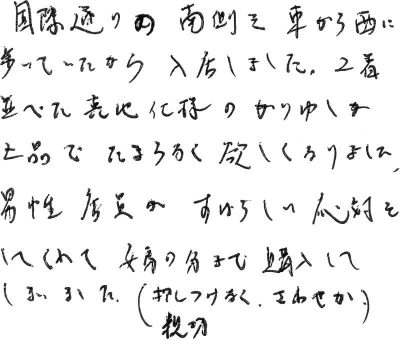 国際通りの南側を東から西に
歩いていたから入店しました。2着
並べた裏地仕様のかりゆしが
上品でたまらなく欲しくなりました、
男性店員が すばらしい応対を
してくれて 女房の分まで購入して
しまいました。(押しつけなく、
親切